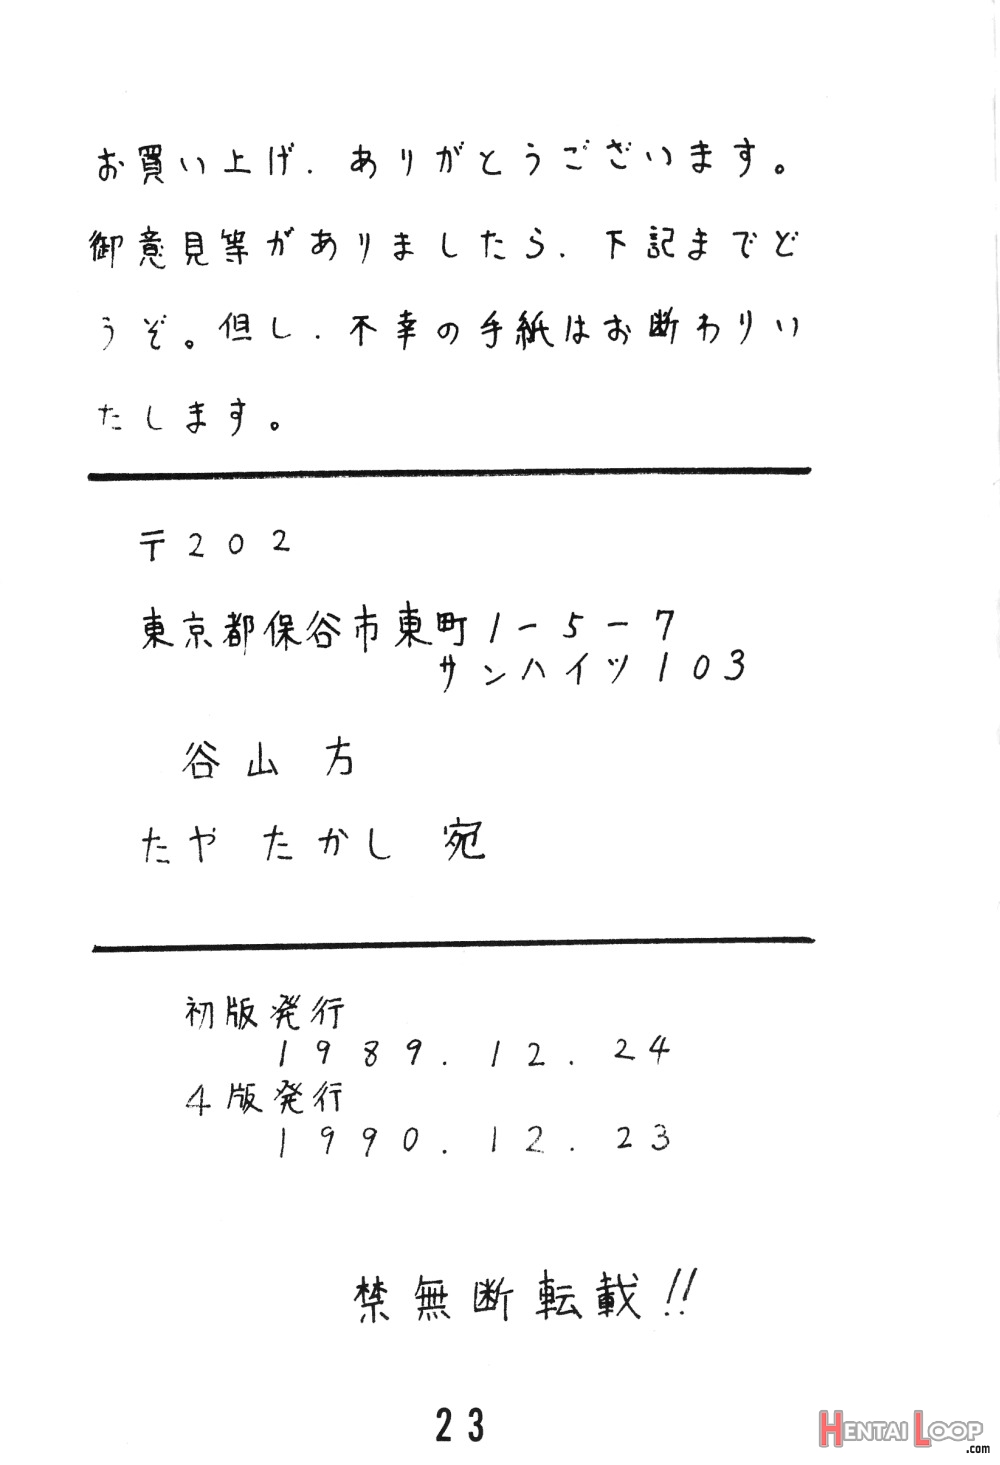 お買い上げ、ありがとうございます。
御意見等がありましたら、下記までど
うぞ。但し、不幸の手紙はお断わりい
たします。
〒202
東京都保谷市東町1-5-7
サンハイツ103
谷山 方
たや たかし 宛
初版発行
1989.12.24
4版発行
1990.12.23
禁無断転載!!
23
HENTAI LOOP
.com